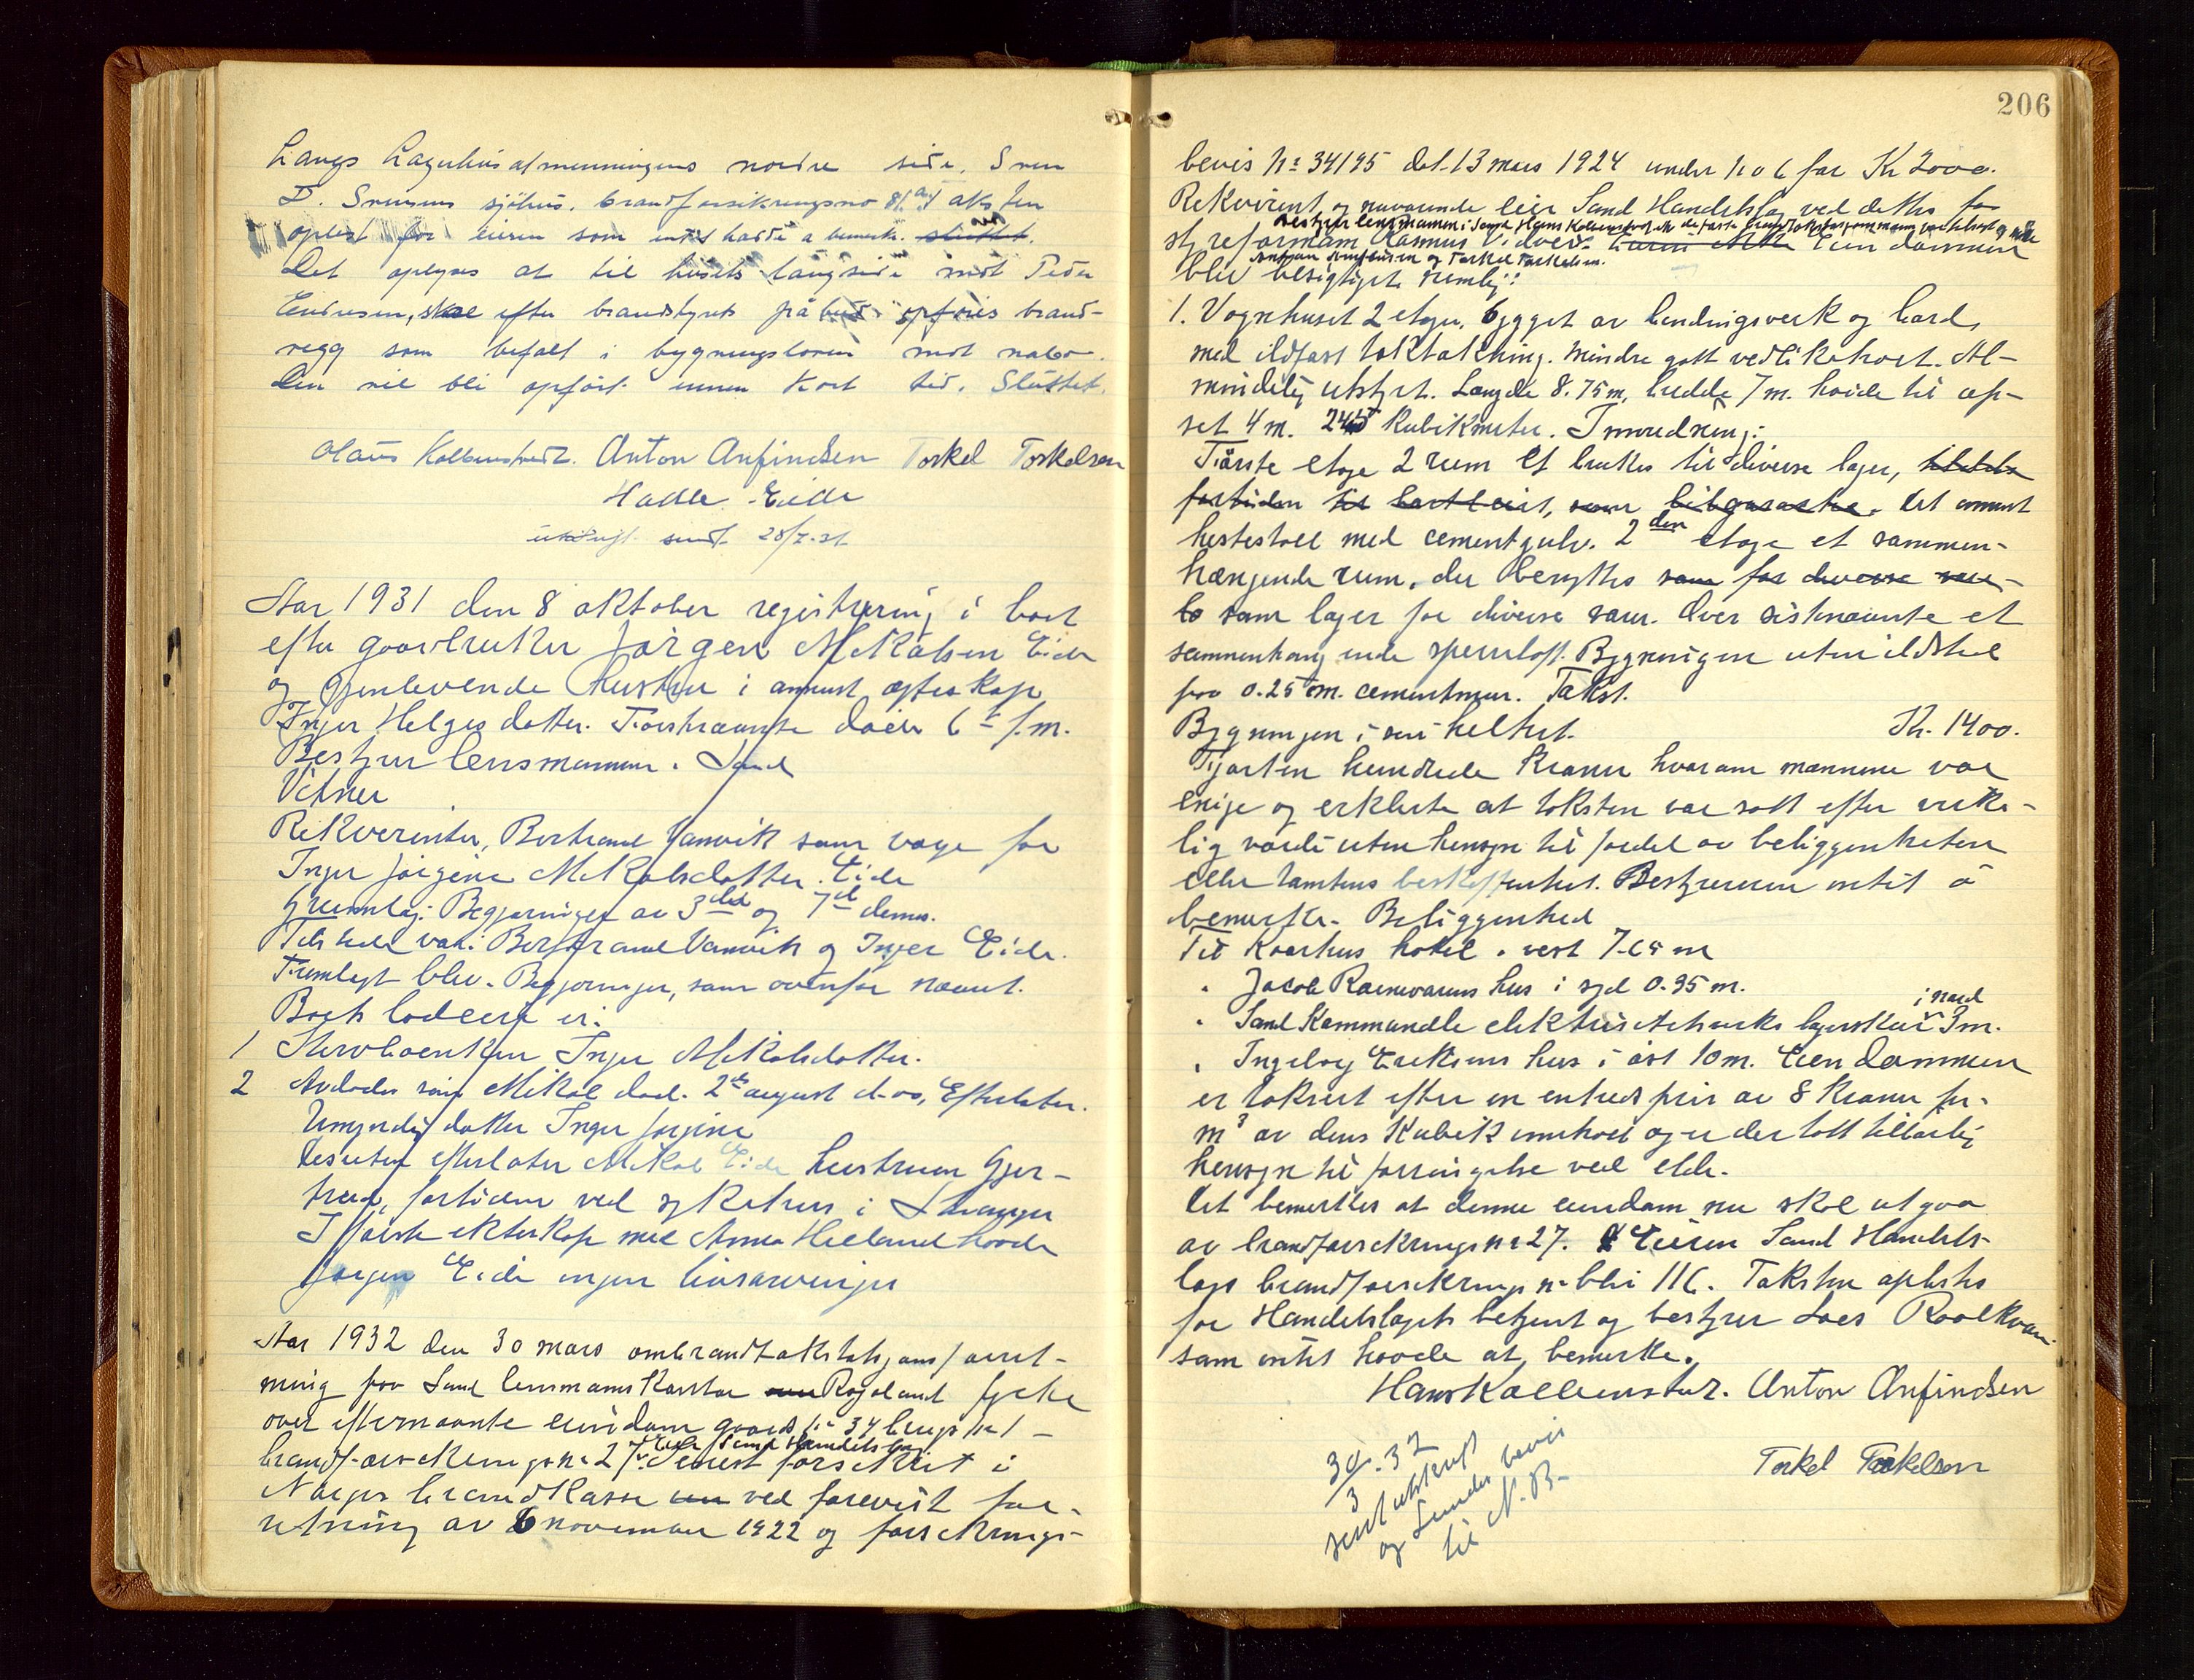 Langs Lagerhus almenningens nordre side. Sven
D. Svensens sjöhus. brandforsikringsno 81. Taksten
oplest for eieren som intet hadde a bemerke. sluttet.
Det oplyses at til husets langside mot Peder
Endresen, skal efter brandstyrets påbud opföres brand-
vegg som befalt i bygningsloven mot nabo.
Den vil bli opfört innen kort tid. Sluttet.
Olaus Kolbenstvedt. Anton Anfindsen Torkel Torkelsen
Hadle Eide
utskrift sendt 28/7-31
Aar 1931 den 8 oktober registrering i boet
efter gaardbruker Jørgen Mikalsen Eide
og gjenlevende hustru i annet ægteskap
Inger Helgesdatter. Førstnævnte døde 6t f.m.
Bestyrer lensmannen i Sand
Vitner
Rekverenter, Bertrand Vanvik som verge for
Inger Jørgine Mikalsdatter Eide
Grunnlag: Begjæringer av 3die og 7de dennes.
Tilstede var: Bertrand Vanvik og Inger Eide.
Fremlagt blev. Begjæringer, som ovenfor nævnt.
Boets lodeiere er:
1 Stervboenken Inger Mikalsdatter.
2 Avdødes sønn Mikal død 2den august d.aa. Efterlater.
Umyndig datter Inger Jørgine
Desuten efterlater Mikal Eide hustruen Gjer-
trud, fortiden ved sykehus i Stavanger
I første ekteskap med Anna Hieland hadde
Jørgen Eide ingen livsarvinger
Aar 1932 den 30 mars ombrandtakstationsforret-
ning fra Sand lensmannskontor Rogaland fylke
over efternevnte eiendom gaards nr 34 bruks nr 1 -
Eier Sand Handelslag
brandforsikrings nr 27. Senest forsikret i
Norges brandkasse ved forevist for-
retning av 6 november 1922 og forsikrings-
206
bevis No 34195 dat. 13 mars 1924 under No 6 for Kr 2000.
Rekvirent og nuværende eier Sand Handelslag ved dettes for
bestyrer lensmannen i Sand Hans Kolbenstvedt
styreformann Rasmus Eiendommen
Anton Anfindsen og Torkel Torkelsen.
blev besigtiget nemlig:
1. Vognhuset 2 etager, bygget av bindingsverk og bord,
med ildfast taktækning. Mindre godt vedlikeholdt. Al-
mindelig utstyrt. Længde 8.75 m, bredde 7 m. høide til op-
set 4 m. 245 kubikmeter. Innredning:
Første etage 2 rum. Et brukes til diverse lager,
fortiden til bortleiet, som bilgarasche. Det annet
hestestall med cementgulv. 2den etage et sammen-
hængende rum, der benyttes som for diverse var-
som lager for diverse varer. Over sistnævnte et
sammenhængende sperreloft. Bygningen uten ildsted
paa 0.25 m. cementmur. Takst.
Bygningen i sin helhet. Kr. 1400.
Fjorten hundrede kroner hvorom mennene var
enige og erklærte at taksten var satt efter virke-
lig værdi uten hensyn til fordel av beliggenheten
eller tomtens beskaffenhet. Bestyreren intet å
bemerke. Beliggenhed
Til Kaarhus hotel i vest 7.65 m
" Jacob Rarnevarens hus i syd 0.95 m.
i nord
" Sand Kommunale elektrisitetsverks lagerskur 3 m.
" Ingeborg Eriksens hus i øst 10 m. Eiendommen
er taksert efter en enhedspris av 8 kroner pr.
m3 av dens kubikinnhold og er der tatt tilbørlig
hensyn til forringelse ved elde.
Det bemerkes at denne eiendom nu skal utgaa
av brandforsikrings nr 27. Eieren Sand Handels-
lags brandforsikrings nr blir 116. Taksten oplestes
for Handelslagets betjent og bestyrer Lars Roalkvam
som intet hadde at bemerke.
Hans Kolbenstvedt. Anton Anfindsen
Torkel Torkelsen
30/3. 32
sent utskrift
og bevis
til N. B.